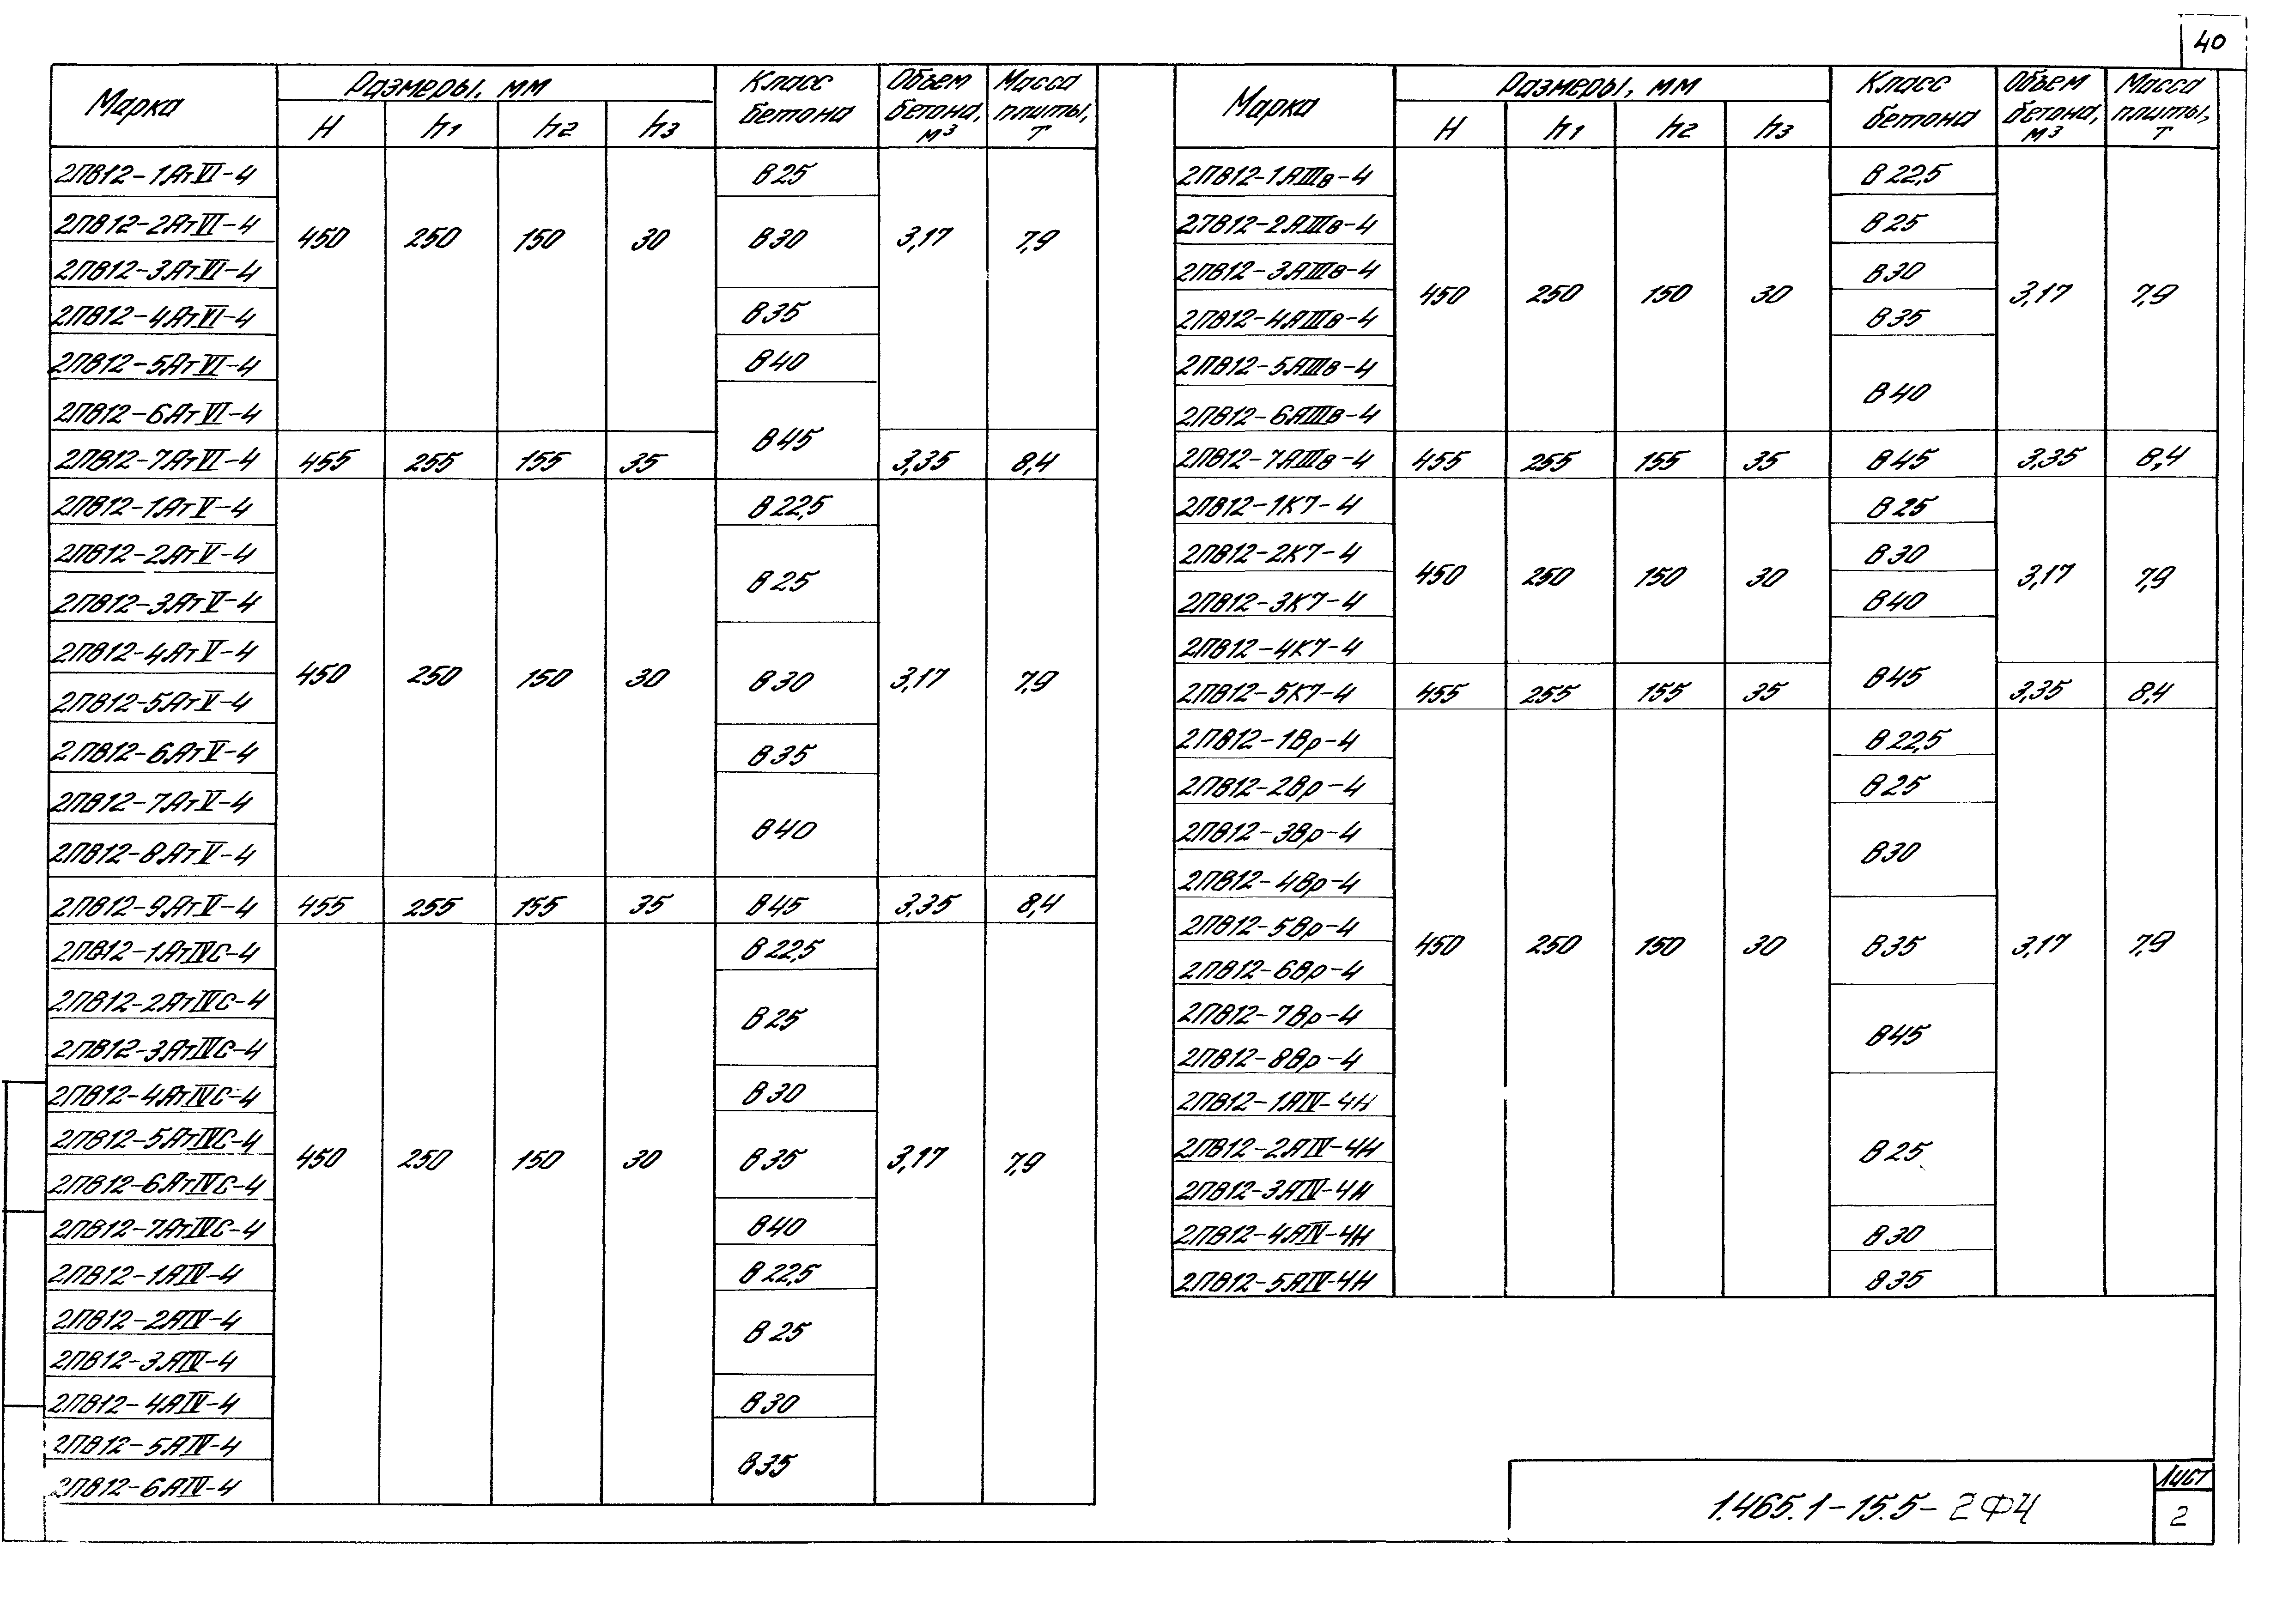 40
Марка Размеры, мм Класс бетона Объем бетона, м³ Масса плиты, т
H h1 h2 h3
2ПВ12-1АтVI-4 В25
2ПВ12-2АтVI-4 450 250 150 30 В30 3,17 7,9
2ПВ12-3АтVI-4
2ПВ12-4АтVI-4 В35
2ПВ12-5АтVI-4 В40
2ПВ12-6АтVI-4 В45
2ПВ12-7АтVI-4 455 255 155 35 3,35 8,4
2ПВ12-1АтV-4 В22,5
2ПВ12-2АтV-4 В25
2ПВ12-3АтV-4
2ПВ12-4АтV-4 450 250 150 30 В30 3,17 7,9
2ПВ12-5АтV-4
2ПВ12-6АтV-4 В35
2ПВ12-7АтV-4 В40
2ПВ12-8АтV-4
2ПВ12-9АтV-4 455 255 155 35 В45 3,35 8,4
2ПВ12-1АтIVС-4 В22,5
2ПВ12-2АтIVС-4 В25
2ПВ12-3АтIVС-4
2ПВ12-4АтIVС-4 В30
2ПВ12-5АтIVС-4 450 250 150 30 В35 3,17 7,9
2ПВ12-6АтIVС-4
2ПВ12-7АтIVС-4 В40
2ПВ12-1АIV-4 В22,5
2ПВ12-2АIV-4 В25
2ПВ12-3АIV-4
2ПВ12-4АIV-4 В30
2ПВ12-5АIV-4 В35
2ПВ12-6АIV-4
Марка Размеры, мм Класс бетона Объем бетона, м³ Масса плиты, т
H h1 h2 h3
2ПВ12-1АIIIв-4 В22,5
2ПВ12-2АIIIв-4 В25
2ПВ12-3АIIIв-4 450 250 150 30 В30 3,17 7,9
2ПВ12-4АIIIв-4 В35
2ПВ12-5АIIIв-4 В40
2ПВ12-6АIIIв-4
2ПВ12-7АIIIв-4 455 255 155 35 В45 3,35 8,4
2ПВ12-1К7-4 В25
2ПВ12-2К7-4 450 250 150 30 В30 3,17 7,9
2ПВ12-3К7-4 В40
2ПВ12-4К7-4 В45
2ПВ12-5К7-4 455 255 155 35 3,35 8,4
2ПВ12-1Вр-4 В22,5
2ПВ12-2Вр-4 В25
2ПВ12-3Вр-4 В30
2ПВ12-4Вр-4
2ПВ12-5Вр-4 450 250 150 30 В35 3,17 7,9
2ПВ12-6Вр-4
2ПВ12-7Вр-4 В45
2ПВ12-8Вр-4
2ПВ12-1АIV-4Н В25
2ПВ12-2АIV-4Н
2ПВ12-3АIV-4Н
2ПВ12-4АIV-4Н В30
2ПВ12-5АIV-4Н В35
1.465.1-15.5-2ФЧ
Лист
2